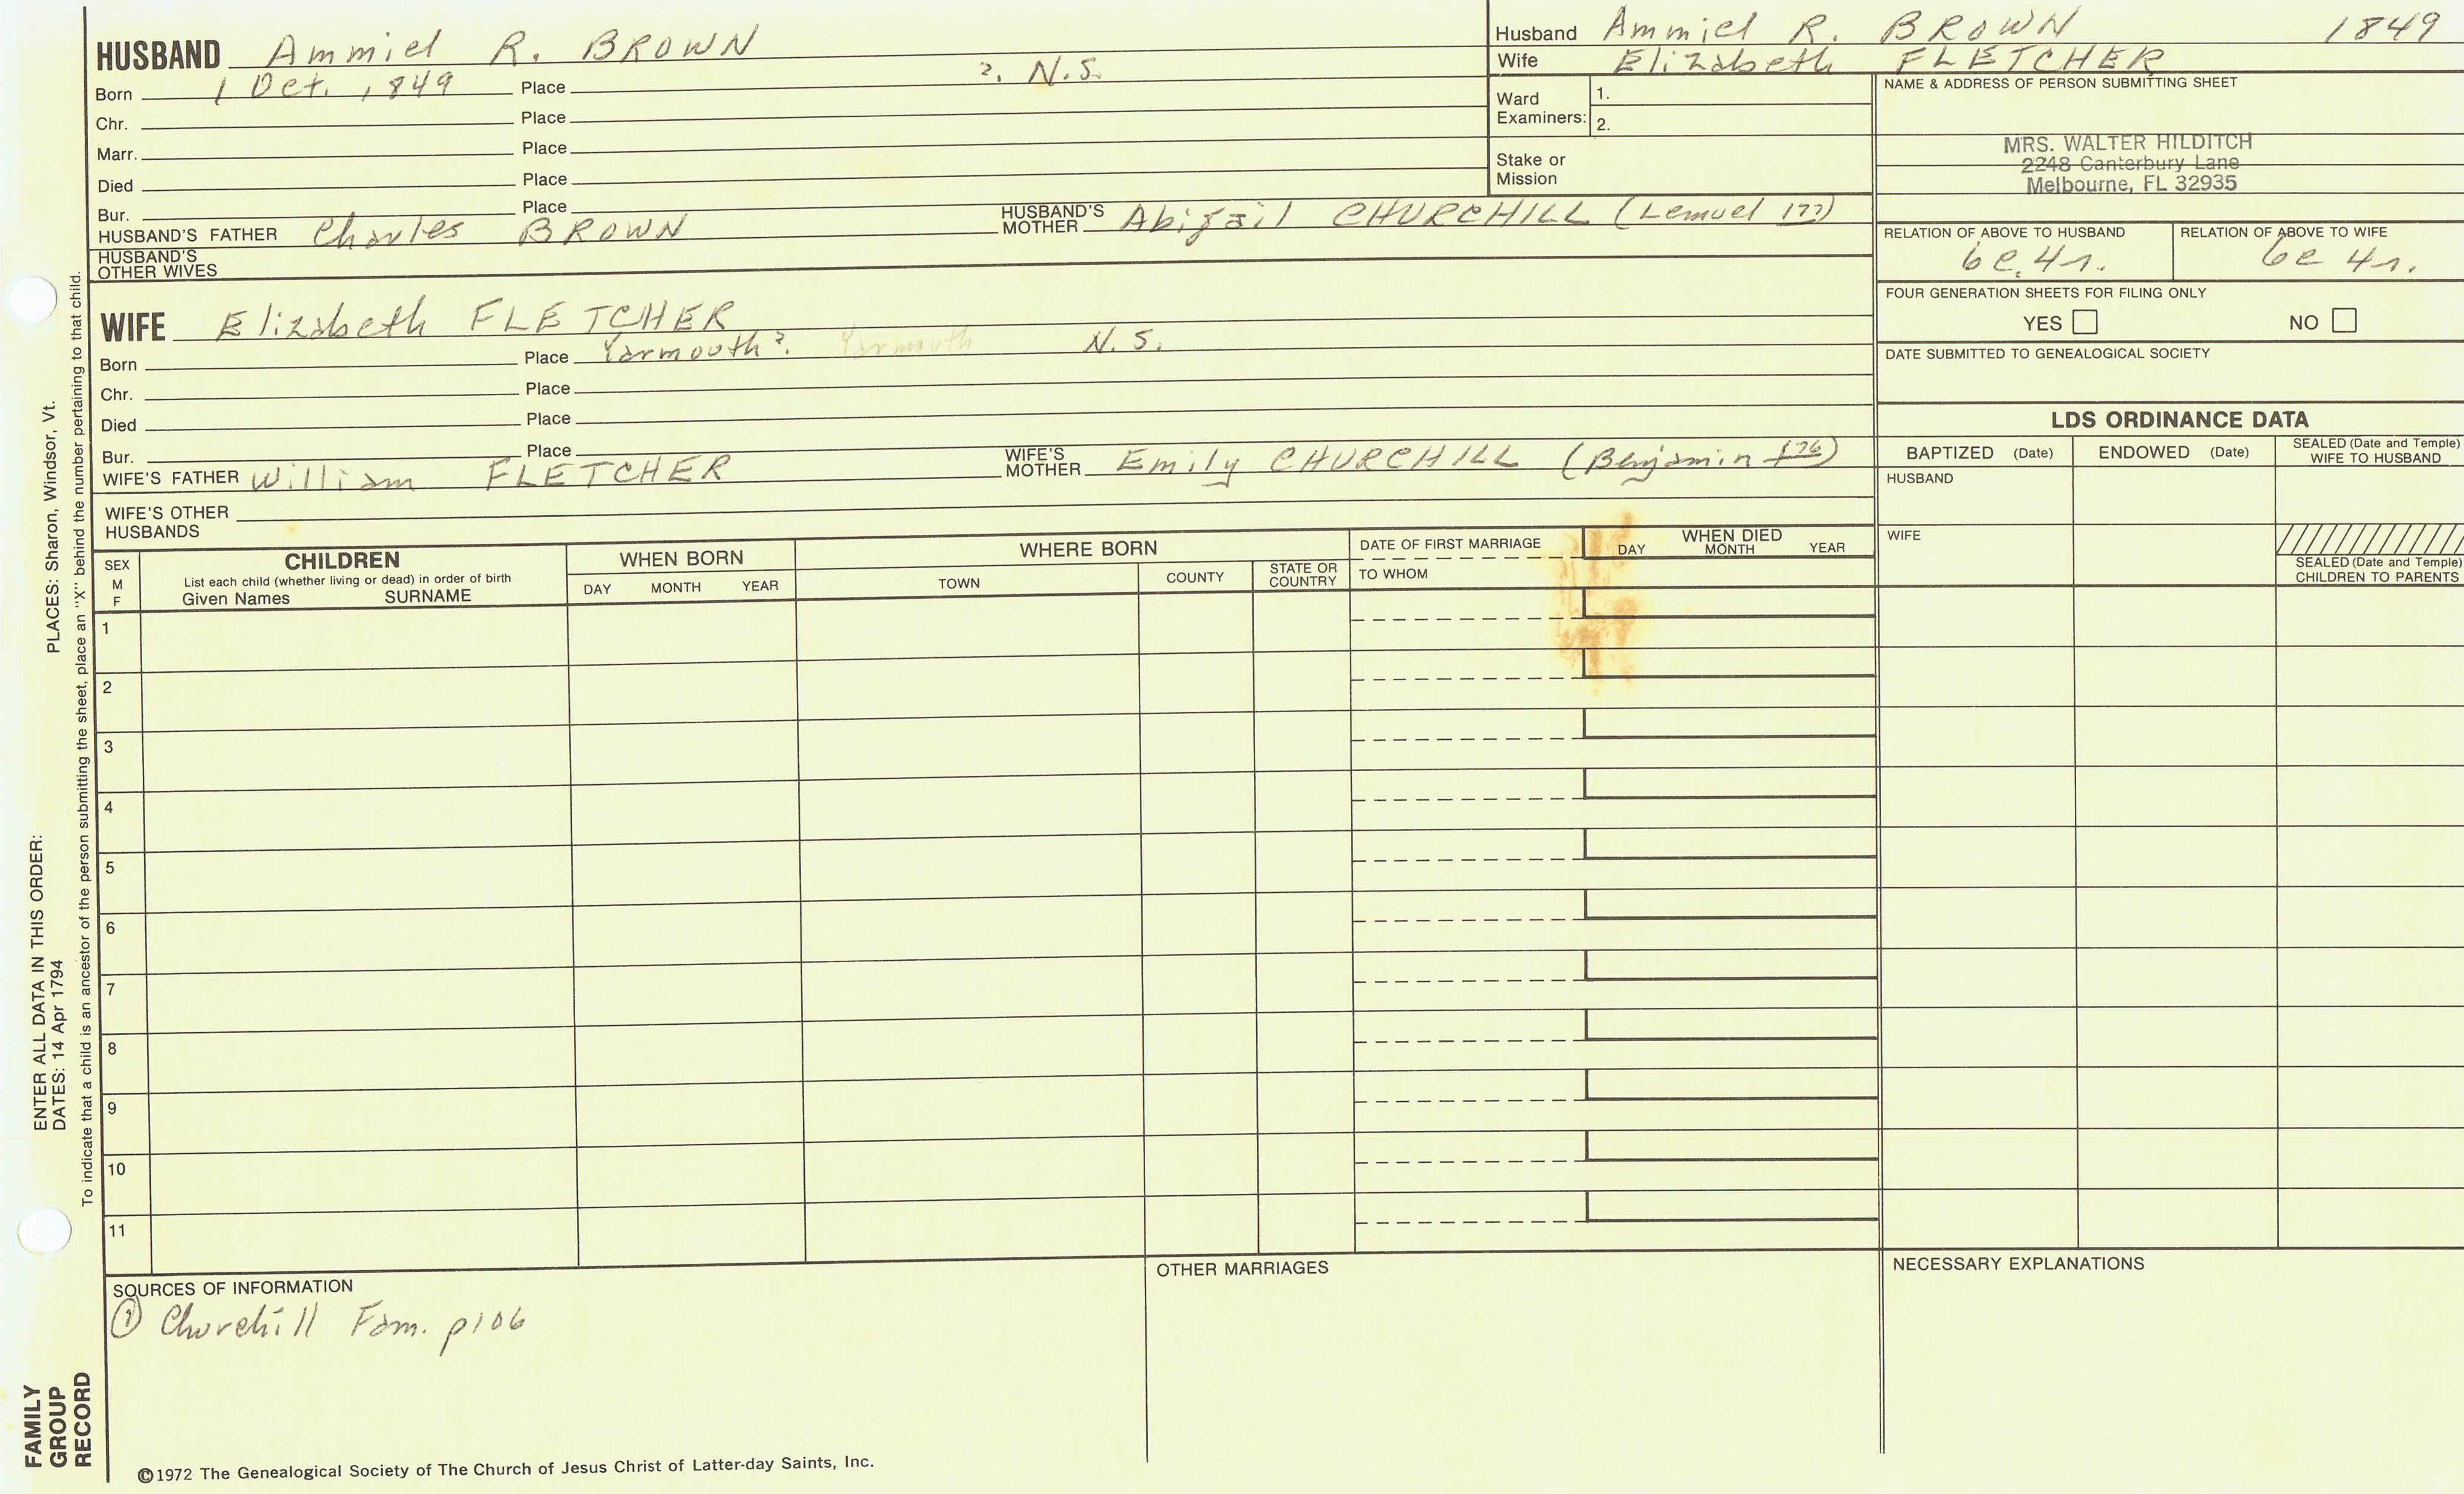 HUSBAND Ammiel R. BROWN
Born 1 Oct. 1849 Place ?. N.S.
Chr. Place
Marr. Place
Died Place
Bur. Place
HUSBAND'S FATHER Charles BROWN HUSBAND'S MOTHER Abigail CHURCHILL (Lemuel 177)
HUSBAND'S OTHER WIVES
Husband Ammiel R. BROWN 1849
Wife Elizabeth FLETCHER
Ward Examiners: 1.
2.
Stake or Mission
NAME & ADDRESS OF PERSON SUBMITTING SHEET
MRS. WALTER HILDITCH
2248 Canterbury Lane
Melbourne, FL 32935
RELATION OF ABOVE TO HUSBAND RELATION OF ABOVE TO WIFE
6c. 4r. 6c 4r.
FOUR GENERATION SHEETS FOR FILING ONLY
YES NO
DATE SUBMITTED TO GENEALOGICAL SOCIETY
WIFE Elizabeth FLETCHER
Born Place Yarmouth?. Yarmouth N.S.
Chr. Place
Died Place
Bur. Place
WIFE'S FATHER William FLETCHER WIFE'S MOTHER Emily CHURCHILL (Benjamin 176)
WIFE'S OTHER HUSBANDS
LDS ORDINANCE DATA
BAPTIZED (Date) ENDOWED (Date) SEALED (Date and Temple) WIFE TO HUSBAND
HUSBAND
WIFE
SEALED (Date and Temple) CHILDREN TO PARENTS
SEX M F
CHILDREN
List each child (whether living or dead) in order of birth
Given Names SURNAME
WHEN BORN
DAY MONTH YEAR
WHERE BORN
TOWN COUNTY STATE OR COUNTRY
DATE OF FIRST MARRIAGE
TO WHOM
WHEN DIED
DAY MONTH YEAR
1
2
3
4
5
6
7
8
9
10
11
SOURCES OF INFORMATION
① Churchill Fam. p106
OTHER MARRIAGES
NECESSARY EXPLANATIONS
©1972 The Genealogical Society of The Church of Jesus Christ of Latter-day Saints, Inc.
FAMILY GROUP RECORD
ENTER ALL DATA IN THIS ORDER:
DATES: 14 Apr 1794 PLACES: Sharon, Windsor, Vt.
To indicate that a child is an ancestor of the person submitting the sheet, place an "X" behind the number pertaining to that child.